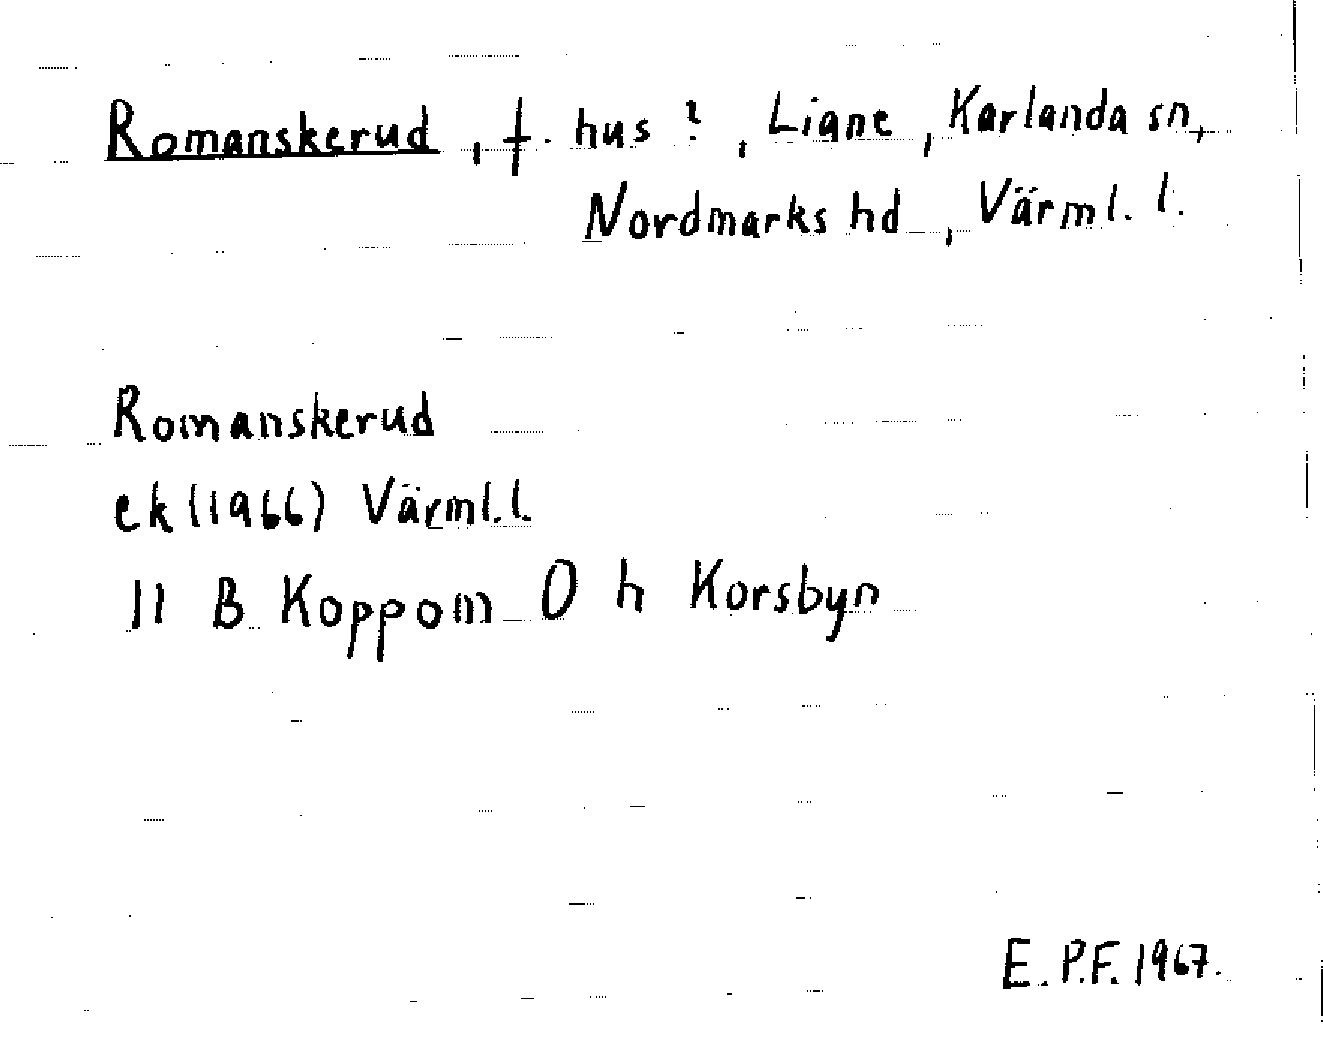 Romanskerud, f. hus ?, Liane, Karlanda sn,
Nordmarks hd, Värml. l.
Romanskerud
ek (1966) Värml. l.
11 B Koppom O h Korsbyn
E. P.F. 1967.